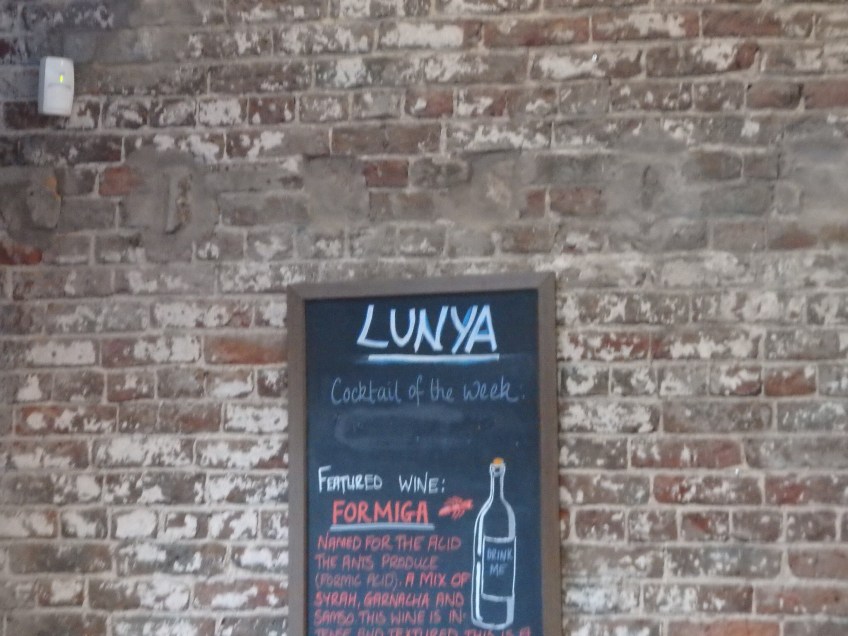 LUNYA
Cocktail of the week:
FEATURED WINE:
FORMIGA
NAMED FOR THE ACID
THE ANTS PRODUCE
(FORMIC ACID). A MIX OF
SYRAH, GARNACHA AND
SAMSO THIS WINE IS IN-
TENSE AND TEXTURED. THIS IS A
DRINK
ME